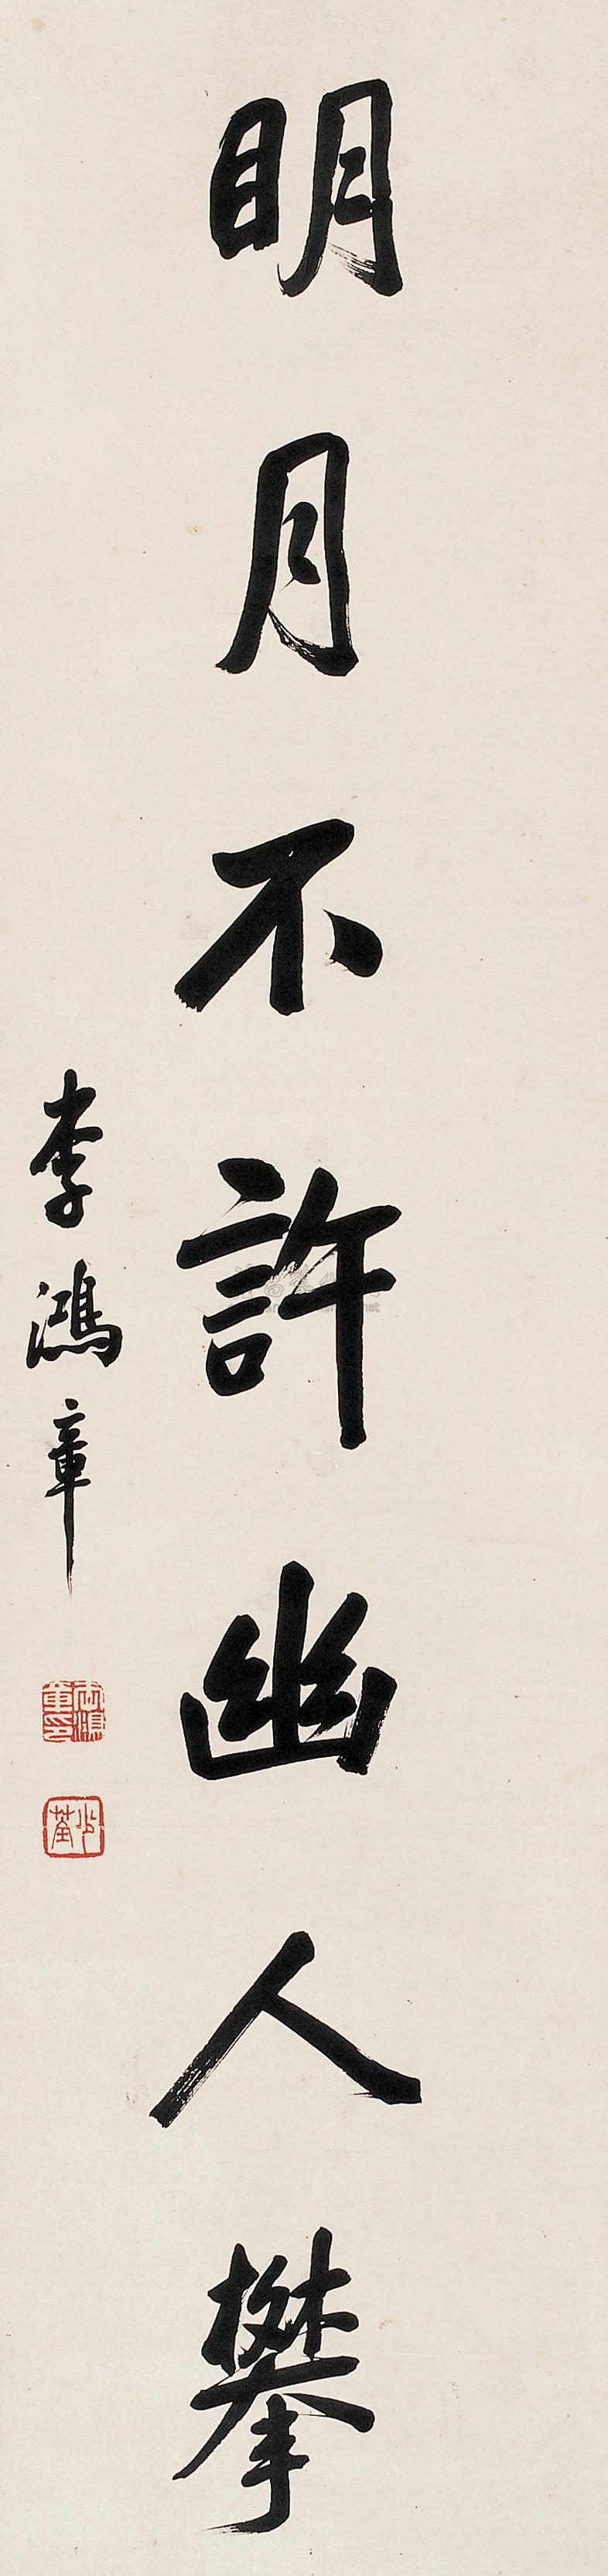 明月不許幽人攀
李鴻章
李鴻章印
少荃